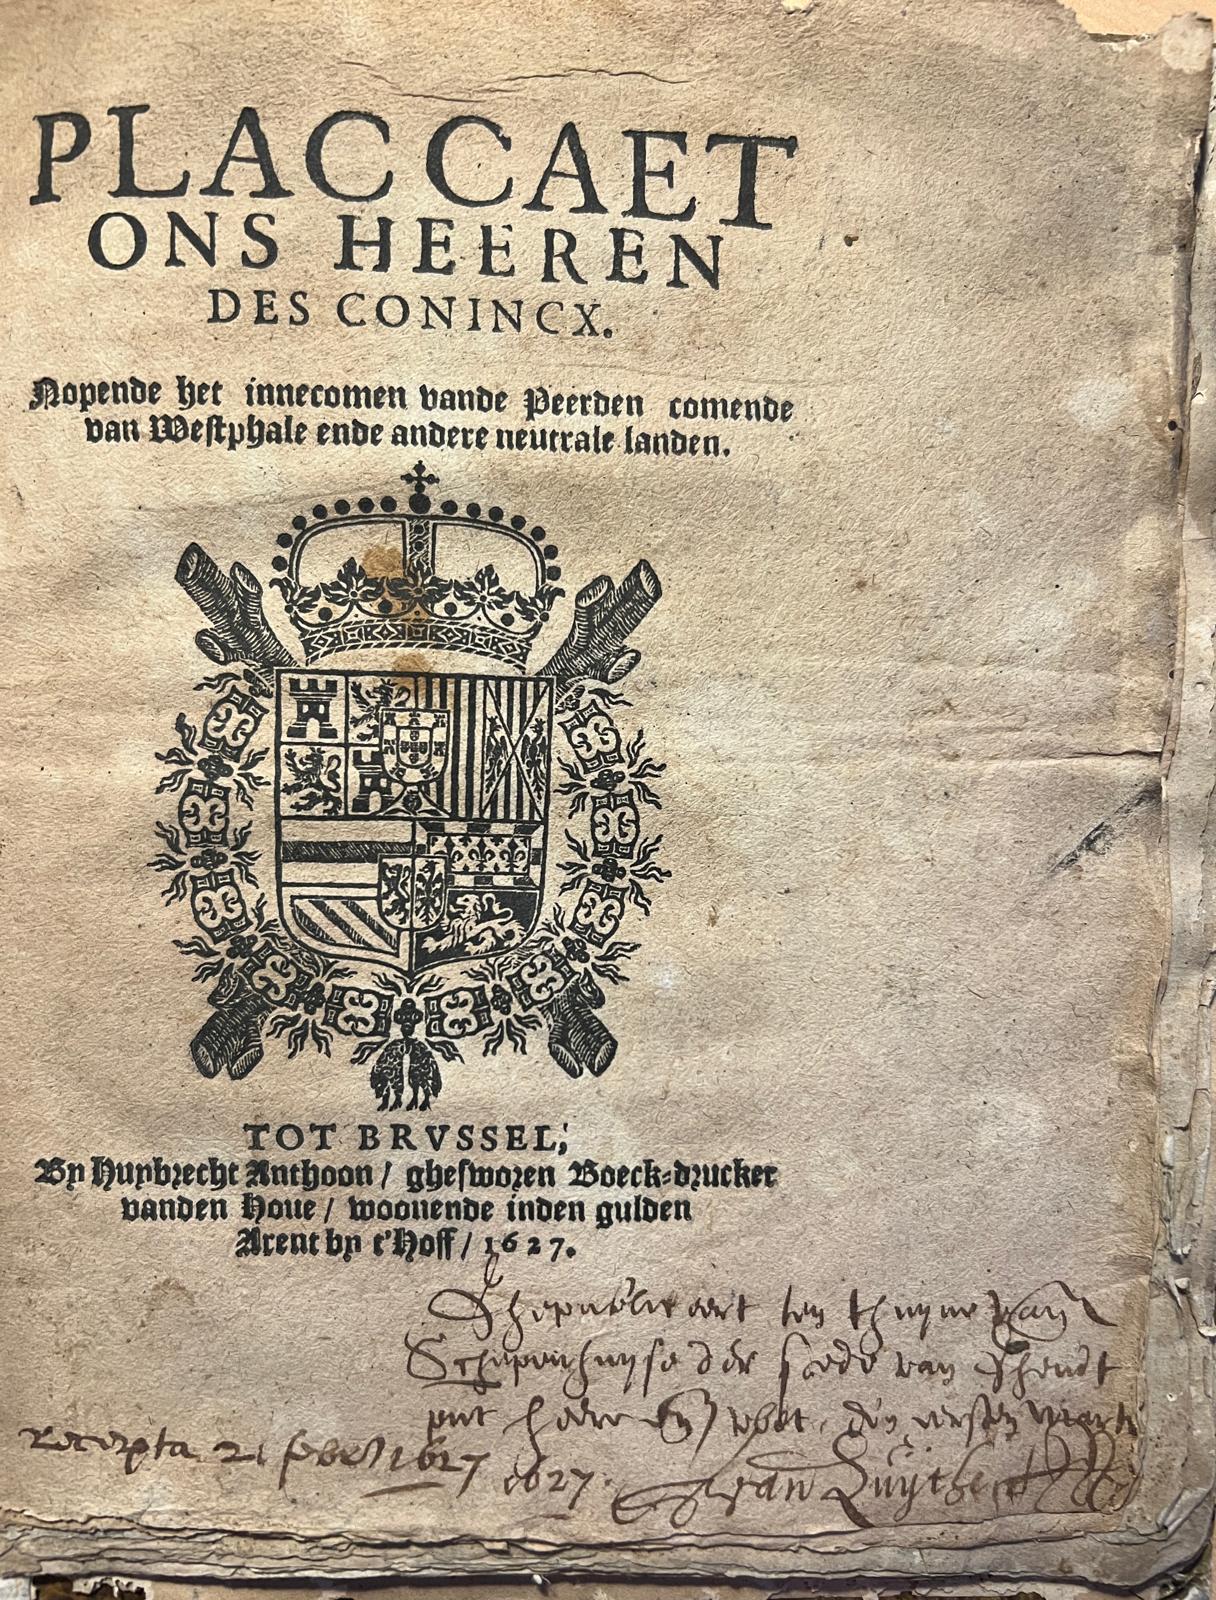 PLACCAET
ONS HEEREN
DES CONINCX.
Nopende het innecomen vande Peerden comende
van Westphale ende andere neutrale landen.
TOT BRVSSEL,
By Huybrecht Anthoon / ghesworen Boeck-drucker
vanden Houe / woonende inden gulden
Arent by t'Hoff / 1627.
Ghepubliceert ten thuyne van
Schepenhuyse der stede van Ghendt
pnt heere den ersten maerte
recepta 21 1627
1627. Jan